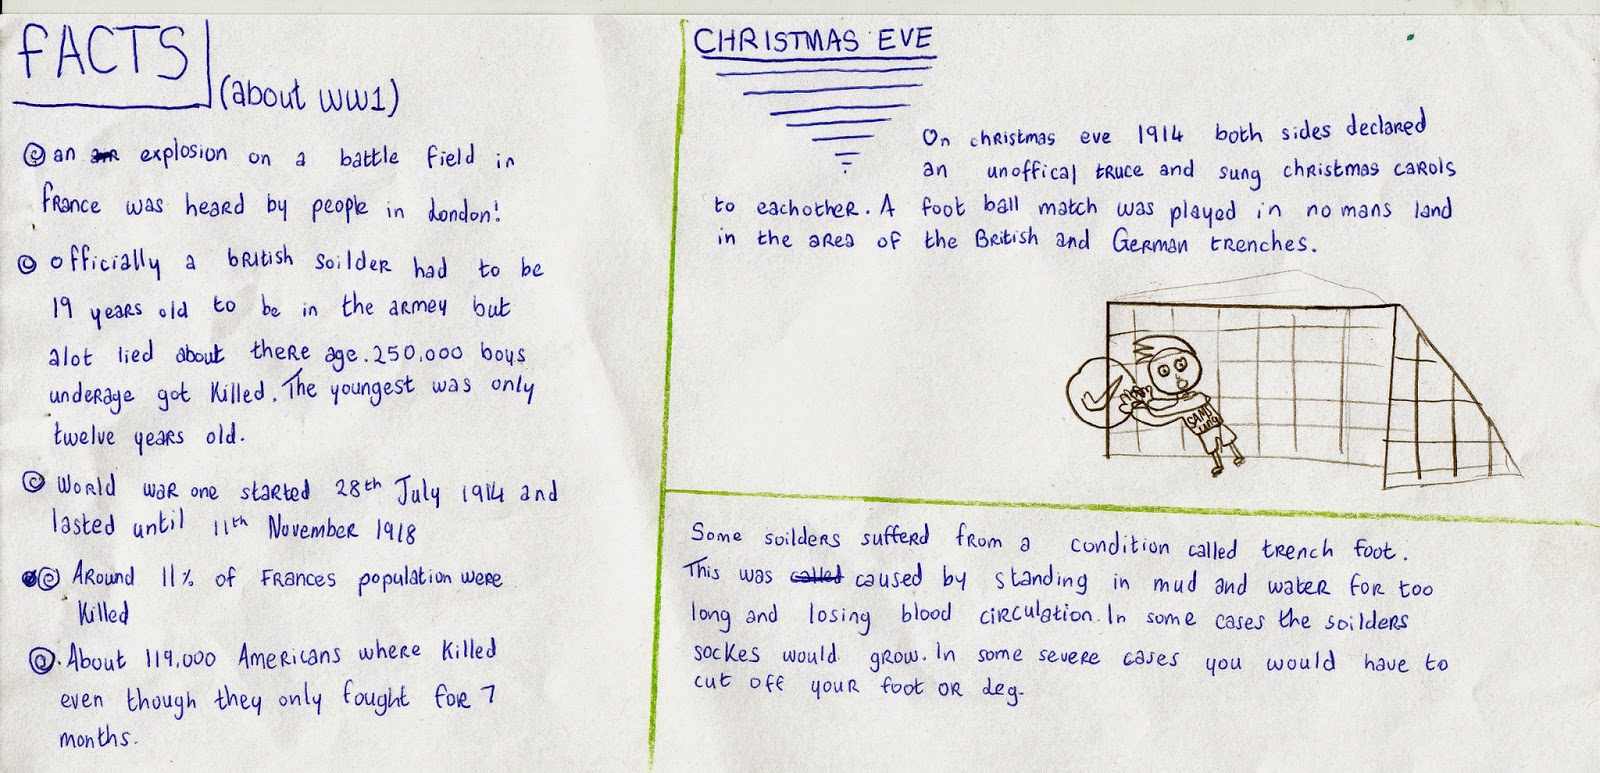 FACTS
(about WW1)
an explosion on a battle field in
france was heard by people in London!
officially a british soilder had to be
19 years old to be in the armey but
alot lied about there age. 250,000 boys
underage got killed. The youngest was only
twelve years old.
World war one started 28th July 1914 and
lasted until 11th November 1918
Around 11% of frances population were
killed
About 119,000 Americans where killed
even though they only fought for 7
months.
CHRISTMAS EVE
On christmas eve 1914 both sides declared
an unoffical truce and sung christmas carols
to eachother. A foot ball match was played in no mans land
in the area of the British and German trenches.
Some soilders sufferd from a condition called trench foot.
This was called caused by standing in mud and water for too
long and losing blood circulation. In some cases the soilders
sockes would grow. In some severe cases you would have to
cut off your foot or deg.